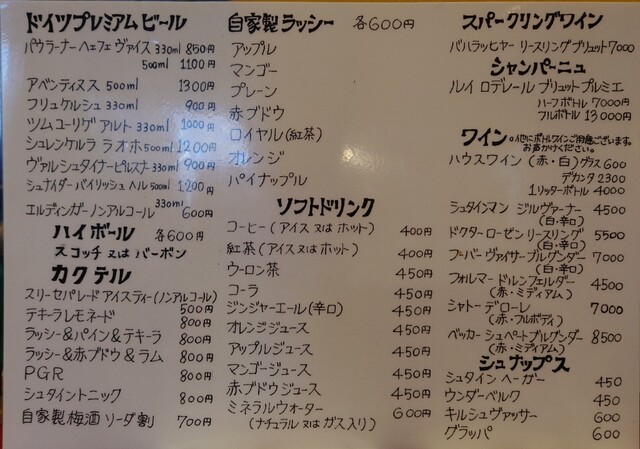 ドイツプレミアムビール
パウラーナーヘフェヴァイス 330ml 850円
500ml 1100円
アベンティヌス 500ml 1300円
フリュケルシュ 330ml 900円
ツムユーリゲアルト 330ml 1000円
シュレンケルラ ラオホ 500ml 1200円
ヴァルシュタイナーピルスナー 330ml 900円
シュナイダーバイリッシュヘル 500ml 1200円
エルディンガーノンアルコール 330ml 600円
ハイボール 各600円
スコッチ又はバーボン
カクテル
スリーセパレードアイスティー(ノンアルコール) 500円
テキーラレモネード 800円
ラッシー&パイン&テキーラ 800円
ラッシー&赤ブドウ&ラム 800円
PGR 800円
シュタイントニック 800円
自家製梅酒ソーダ割 700円
自家製ラッシー 各600円
アップル
マンゴー
プレーン
赤ブドウ
ロイヤル(紅茶)
オレンジ
パイナップル
ソフトドリンク
コーヒー(アイス又はホット) 400円
紅茶(アイス又はホット) 400円
ウーロン茶 450円
コーラ 450円
ジンジャーエール(辛口) 450円
オレンジジュース 450円
アップルジュース 450円
マンゴージュース 450円
赤ブドウジュース 450円
ミネラルウォーター 600円
(ナチュラル又はガス入り)
スパークリングワイン
バハラッヒャー リースリングブリュット 7000
シャンパーニュ
ルイ ロデレール ブリュットプルミエ
ハーフボトル 7000円
フルボトル 13000円
ワイン ○他にボトルワインご用意ございます。
お声かけください。
ハウスワイン(赤・白)グラス 600
デカンタ 2300
1リッターボトル 4000
シュタインマン ジルヴァーナー 4500
(白・辛口)
ドクターローゼンリースリング 5500
(白・辛口)
フーバーヴァイサーブルグンダー 7000
(白・辛口)
フォルマードルンフェルダー 4500
(赤・ミディアム)
シャトーデローレ 7000
(赤・フルボディ)
ベッカーシュペートブルグンダー 8500
(赤・ミディアム)
シュナップス
シュタインヘーガー 450
ウンダーベルク 450
キルシュヴァッサー 600
グラッパ 600